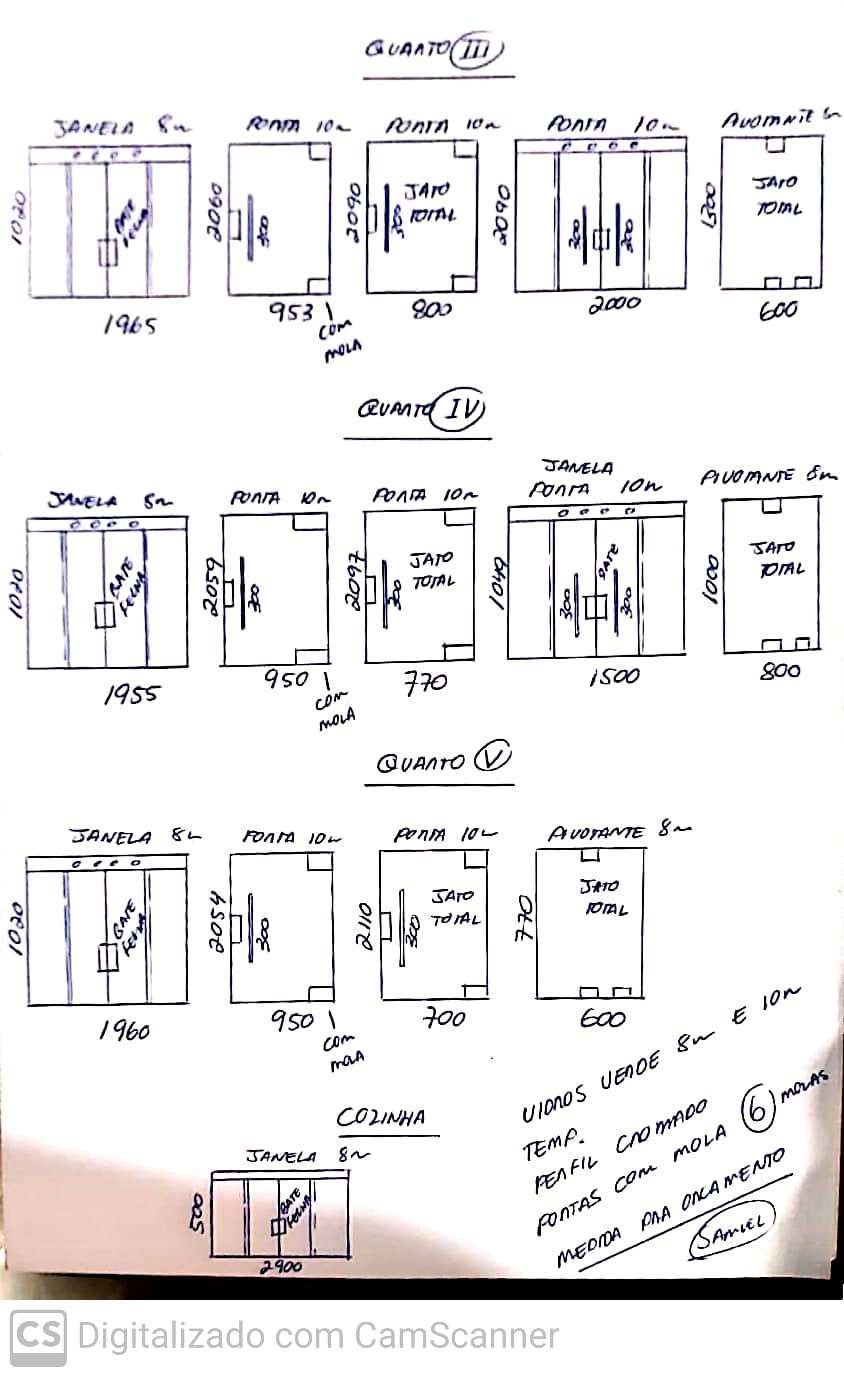 QUARTO III
JANELA 8m
PORTA 10m
PORTA 10m
PORTA 10m
PIVOTANTE 8m
1020
BATE
FECHA
1965
2060
300
953
COM
MOLA
2090
300
JATO
TOTAL
800
2090
300
300
2000
1300
JATO
TOTAL
600
QUARTO IV
JANELA 8m
PORTA 10m
PORTA 10m
JANELA
PORTA 10m
PIVOTANTE 8m
1020
BATE
FECHA
1955
2059
300
950
COM
MOLA
2097
300
JATO
TOTAL
770
1049
300
BATE
300
1500
1000
JATO
TOTAL
800
QUARTO V
JANELA 8m
PORTA 10m
PORTA 10m
PIVOTANTE 8m
1020
BATE
FECHA
1960
2054
300
950
COM
MOLA
2110
300
JATO
TOTAL
700
770
JATO
TOTAL
600
COZINHA
JANELA 8m
500
BATE
FECHA
2900
VIDROS VERDE 8m E 10m
TEMP.
PERFIL CROMADO
PORTAS COM MOLA 6 MOLAS
MEDIDA PRA ORCAMENTO
SAMUEL
CS Digitalizado com CamScanner